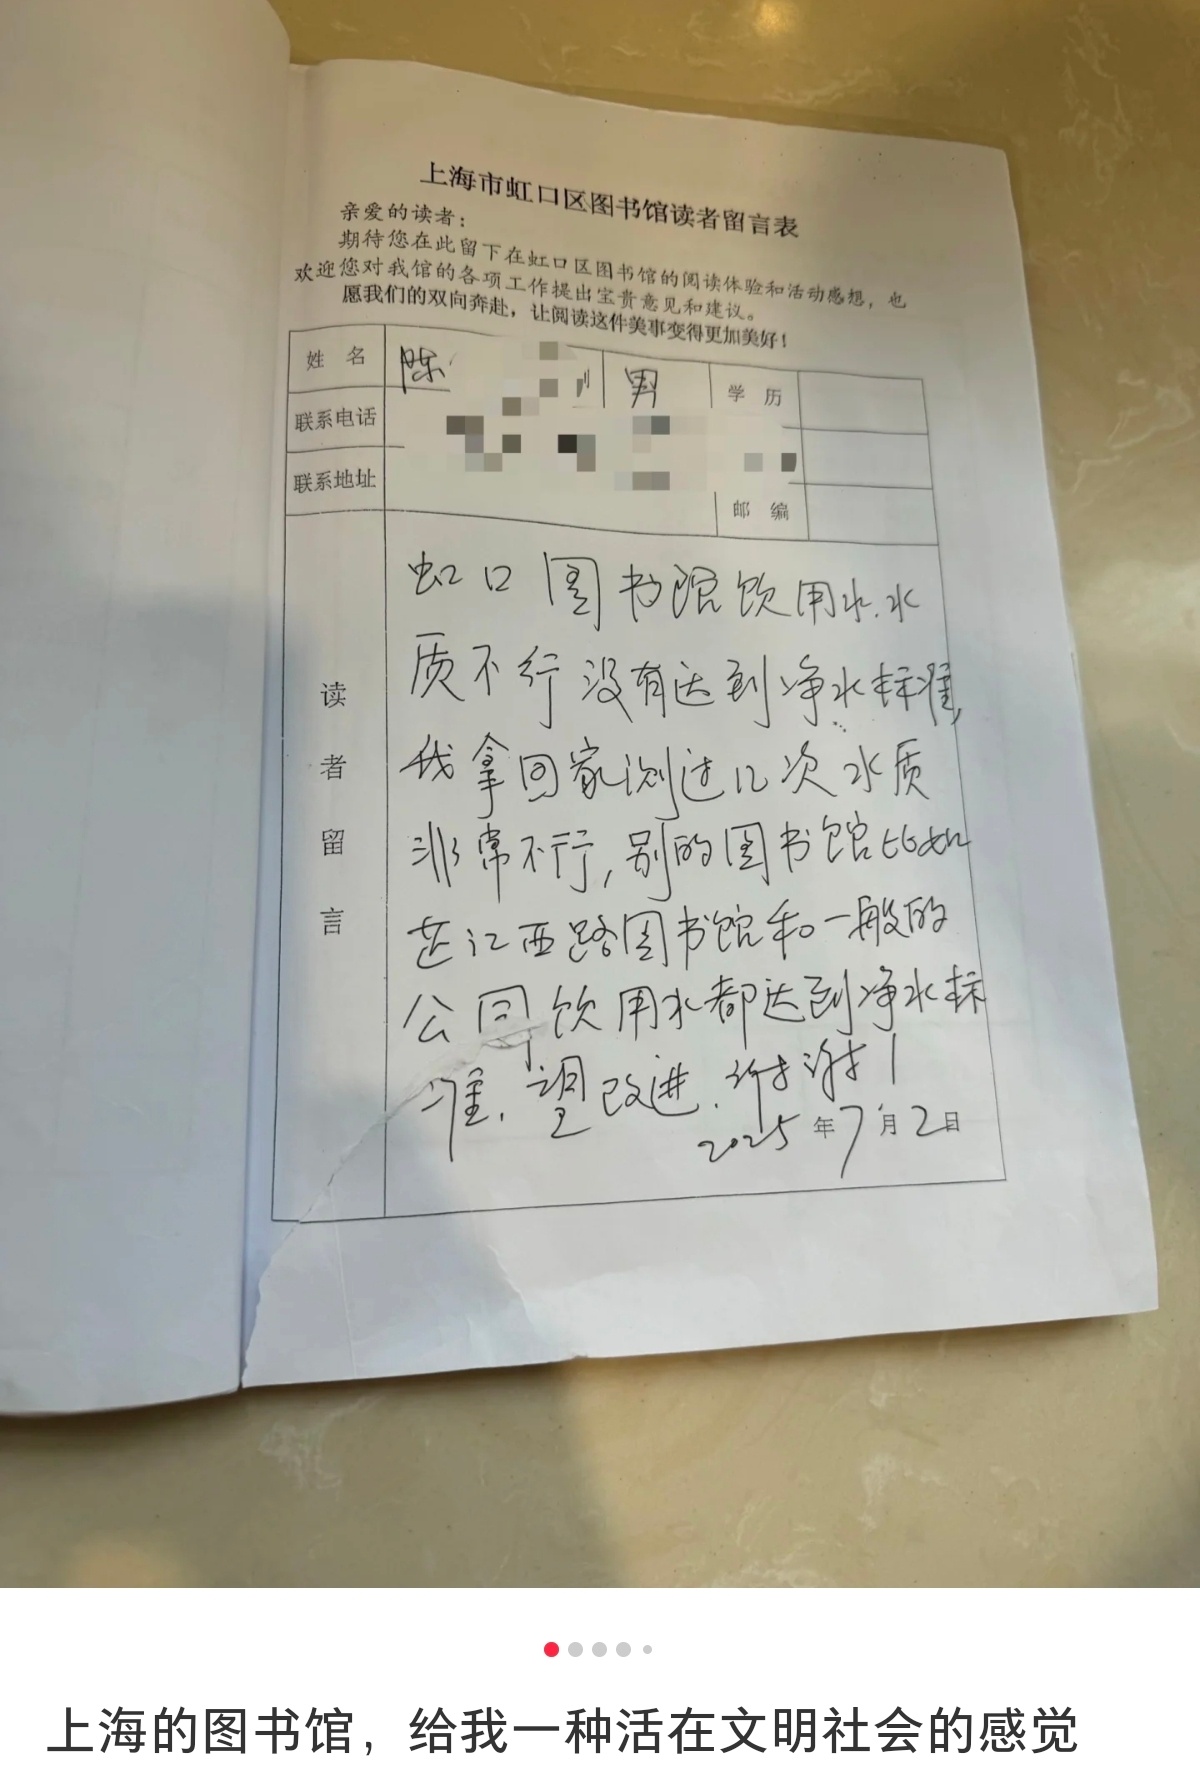 上海市虹口区图书馆读者留言表
亲爱的读者：
期待您在此留下在虹口区图书馆的阅读体验和活动感想，也
欢迎您对我馆的各项工作提出宝贵意见和建议。
愿我们的双向奔赴，让阅读这件美事变得更加美好！
姓 名 陈 男 学 历
联系电话
联系地址
邮 编
读者留言
虹口图书馆饮用水.水
质不行没有达到净水标准,
我拿回家测过几次水质
非常不行,别的图书馆比如
芷江西路图书馆和一般的
公司饮用水都达到净水标
准.望改进.谢谢！
2025年7月2日
上海的图书馆，给我一种活在文明社会的感觉